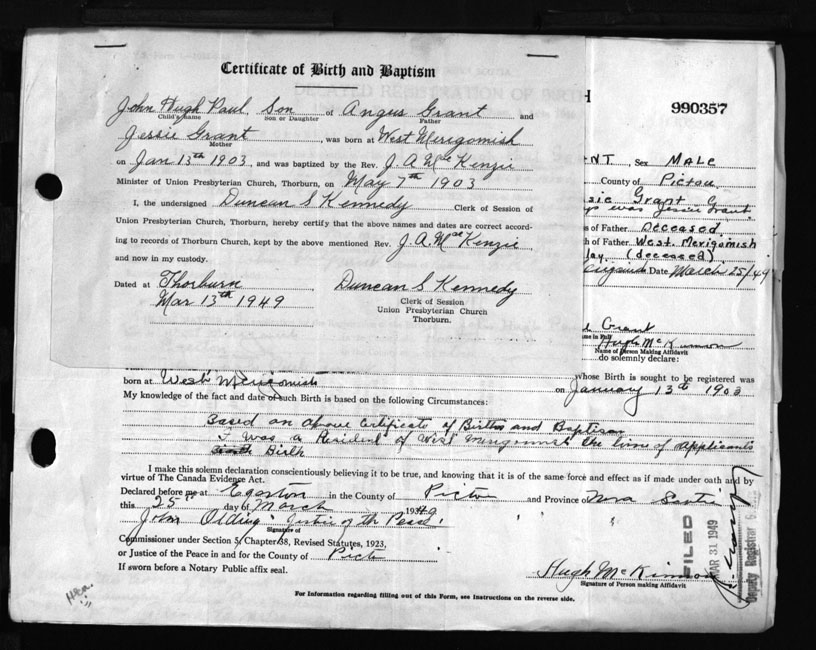 Certificate of Birth and Baptism
John Hugh Paul, Son of Angus Grant and
Child's name Son or Daughter Father
Jessie Grant, was born at West Merigomish
Mother
on Jan 13th 1903, and was baptized by the Rev. J. A. McKenzie
Minister of Union Presbyterian Church, Thorburn, on May 7th 1903
I, the undersigned Duncan S Kennedy Clerk of Session of
Union Presbyterian Church, Thorburn, hereby certify that the above names and dates are correct accord-
ing to records of Thorburn Church, kept by the above mentioned Rev. J. A. McKenzie
and now in my custody.
Dated at Thorburn
Mar 13th 1949
Duncan S Kennedy
Clerk of Session
Union Presbyterian Church
Thorburn.
H
990357
NT, Sex Male
County of Pictou
sie Grant
was Jessie Grant.
s of Father Deceased
h of Father West Merigomish
lay. (deceased)
Date March 25/49
Grant
me in Full
Hugh McKinnon
Name of Person Making Affidavit
do solemnly declare:
whose Birth is sought to be registered was
born at West Merigomish on January 13th 1903
My knowledge of the fact and date of such Birth is based on the following Circumstances:
Based on above Certificate of Birth and Baptism
I was a Resident of West Merigomish the time of applicants
Birth
I make this solemn declaration conscientiously believing it to be true, and knowing that it is of the same force and effect as if made under oath and by
virtue of The Canada Evidence Act.
Declared before me at Egerton in the County of Pictou and Province of Nova Scotia
this 25 day of March 1949
John Olding Justice of the Peace
Signature of
Commissioner under Section 5, Chapter 38, Revised Statutes, 1923,
or Justice of the Peace in and for the County of Pict
If sworn before a Notary Public affix seal.
Hugh McKinnon
Signature of Person Making Affidavit
FILED
MAR 31 1949
Deputy Registrar G
For Information regarding filling out of this Form, see Instructions on the reverse side.